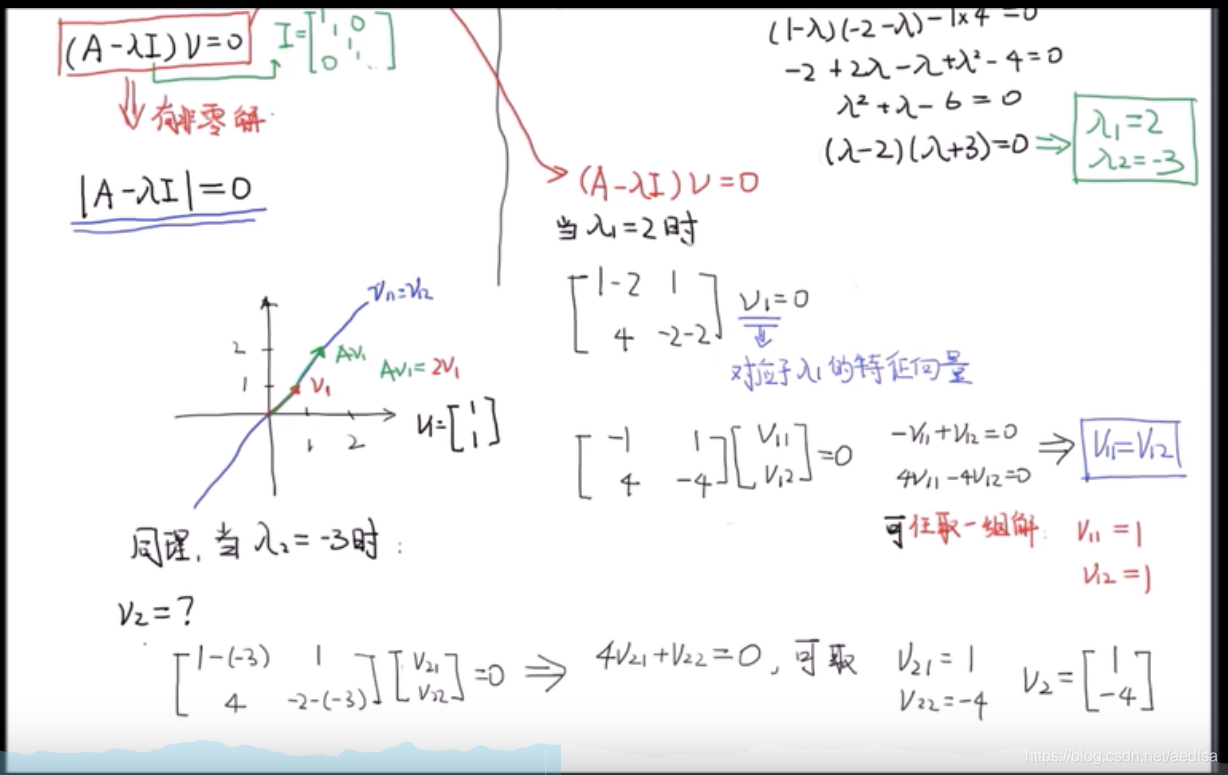 (A-λI)V=0
I=[1 0
1
1
0 ]
有非零解
|A-λI|=0
(1-λ)(-2-λ)-1×4=0
-2+2λ-λ+λ²-4=0
λ²+λ-6=0
(λ-2)(λ+3)=0 ⇒
λ₁=2
λ₂=-3
(A-λI)V=0
当λ₁=2时
[1-2 1
4 -2-2] V₁=0
⇓
对应于λ₁的特征向量
V₁₁=V₁₂
2
AV₁
AV₁=2V₁
1
V₁
1 2
V₁=[1
1]
[-1 1
4 -4] [V₁₁
V₁₂]=0
-V₁₁+V₁₂=0
4V₁₁-4V₁₂=0
⇒ V₁₁=V₁₂
可任取一组解:
V₁₁=1
V₁₂=1
同理,当λ₂=-3时:
V₂=?
[1-(-3) 1
4 -2-(-3)] [V₂₁
V₂₂]=0 ⇒ 4V₂₁+V₂₂=0,可取
V₂₁=1
V₂₂=-4
V₂=[1
-4]
https://blog.csdn.net/aedfsa